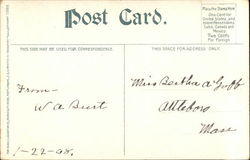 Post Card.
Place the Stamp Here
One Cent for
United States and
Island Possessions,
Cuba, Canada and
Mexico
Two Cents
For Foreign
THIS SIDE MAY BE USED FOR CORRESPONDENCE.
THIS SPACE FOR ADDRESS ONLY.
From-
W A Burt
1-22-08.
Miss Bertha A Goff
Attleboro
Mass